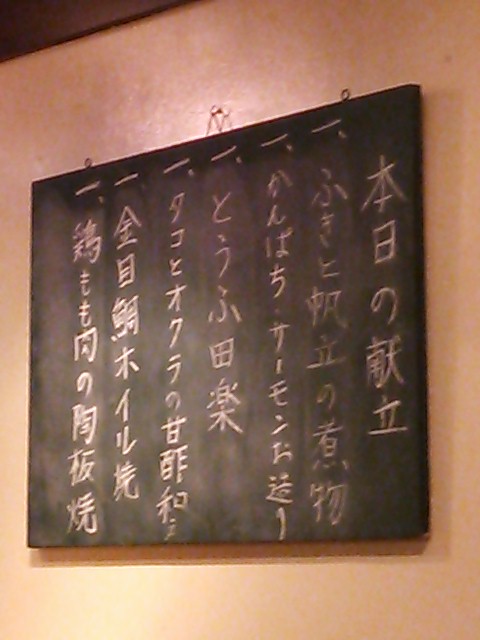 本日の献立
一、ふきと帆立の煮物
一、かんぱち・サーモンお造り
一、とうふ田楽
一、タコとオクラの甘酢和え
一、金目鯛ホイル焼
一、鶏もも肉の陶板焼